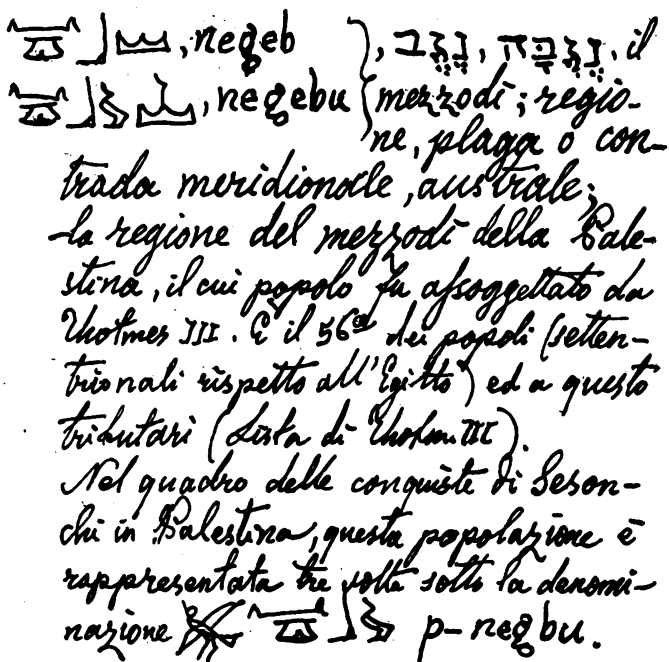 , negeb }, נֶגֶב, נֶגְבָּה, il
, negebu mezzodì; regio-
ne, plaga o con-
trada meridionale, australe;
la regione del mezzodì della Pale-
stina, il cui popolo fu assoggettato da
Thotmes III. È il 56º dei popoli (setten-
trionali rispetto all'Egitto) ed a questo
tributari (Lista di Thotm. III).
Nel quadro delle conquiste di Seson-
chi in Palestina, questa popolazione è
rappresentata tre volte sotto la denomi-
nazione p-negbu.